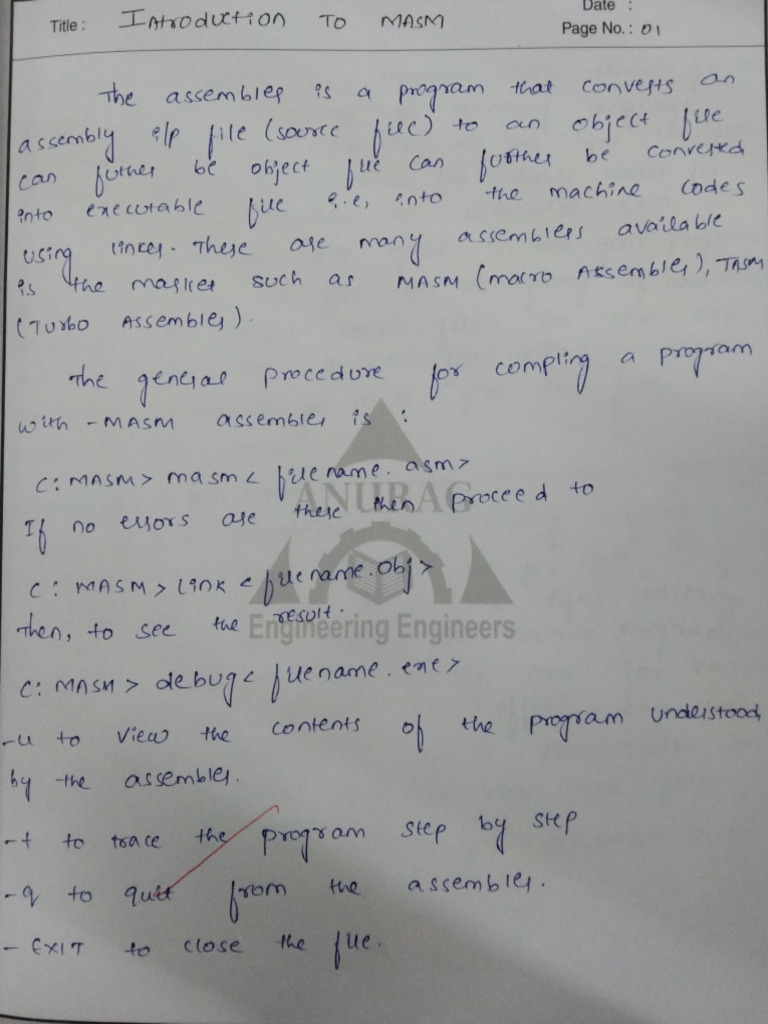 Date :
Title : Introduction TO MASM
Page No. : 01
The assembler is a program that converts an
assembly i/p file (source file) to an object file
can futher be object file can further be converted
into executable file i.e, into the machine codes
using linker. There are many assemblers available
is the market such as MASM (macro Assembler), TASM
(Turbo Assembler).
The general procedure for compling a program
with -MASM assembler is :
C: MASM> masm< file name. asm>
If no errors are there then proceed to
C: MASM> Link < file name.obj>
then, to see the result.
C: MASM> debug< file name. exe>
-u to view the contents of the program understood
by the assembler.
-t to trace the program step by step
-q to quit from the assembler.
- EXIT to close the file.
ANURAG
Engineering Engineers